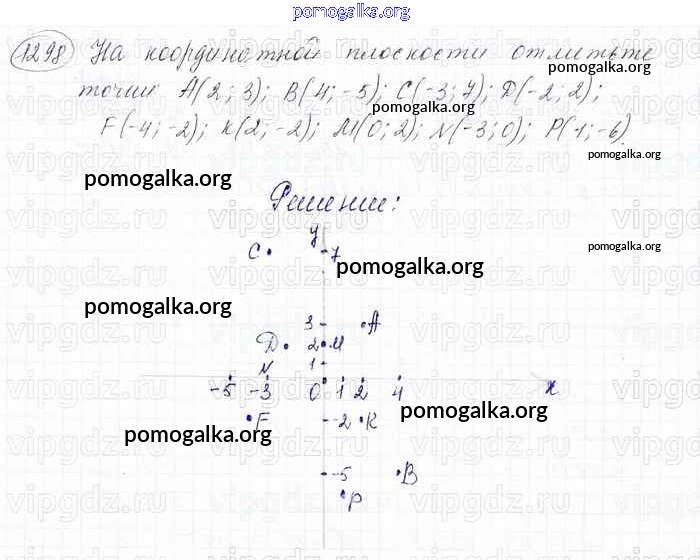 pomogalka.org
1298 На координатной плоскости отметьте
pomogalka.org
точки A(2; 3); B(4; -5); C(-3; 7); D(-2; 2);
pomogalka.org
F(-4; -2); K(2; -2); M(0; 2); N(-3; 0); P(1; -6).
pomogalka.org
pomogalka.org
Решение:
y
C 7
pomogalka.org
pomogalka.org
pomogalka.org
3 A
D 2 M
N 1
-5 -3 0 1 2 4 x
pomogalka.org
F -2 K
pomogalka.org
-5 B
P
vipgdz.ru vipgdz.ru vipgdz.ru vipgdz.ru